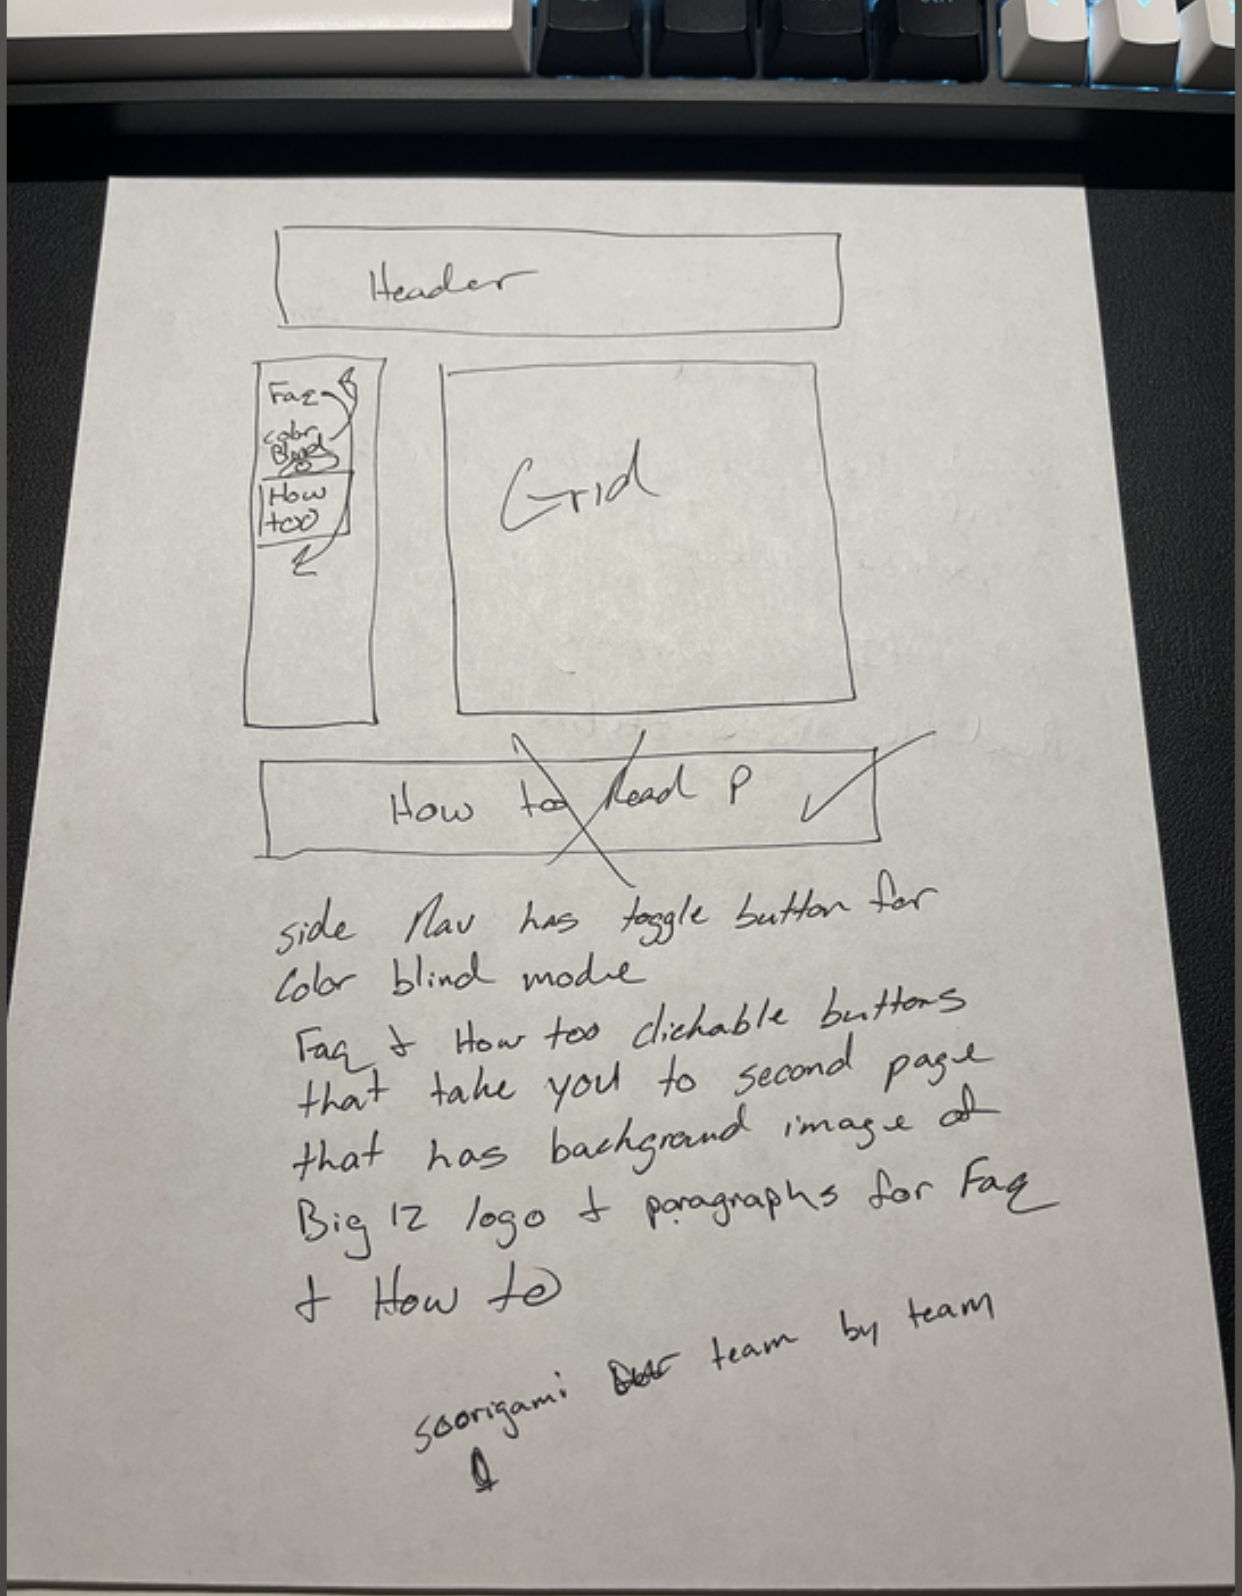 Header
Faq
color
Blind
How
too
Grid
How to Read P
side Nav has toggle button for
Color blind mode
Faq & How too clickable buttons
that take you to second page
that has background image of
Big 12 logo & paragraphs for Faq
& How to
scorigami team by team